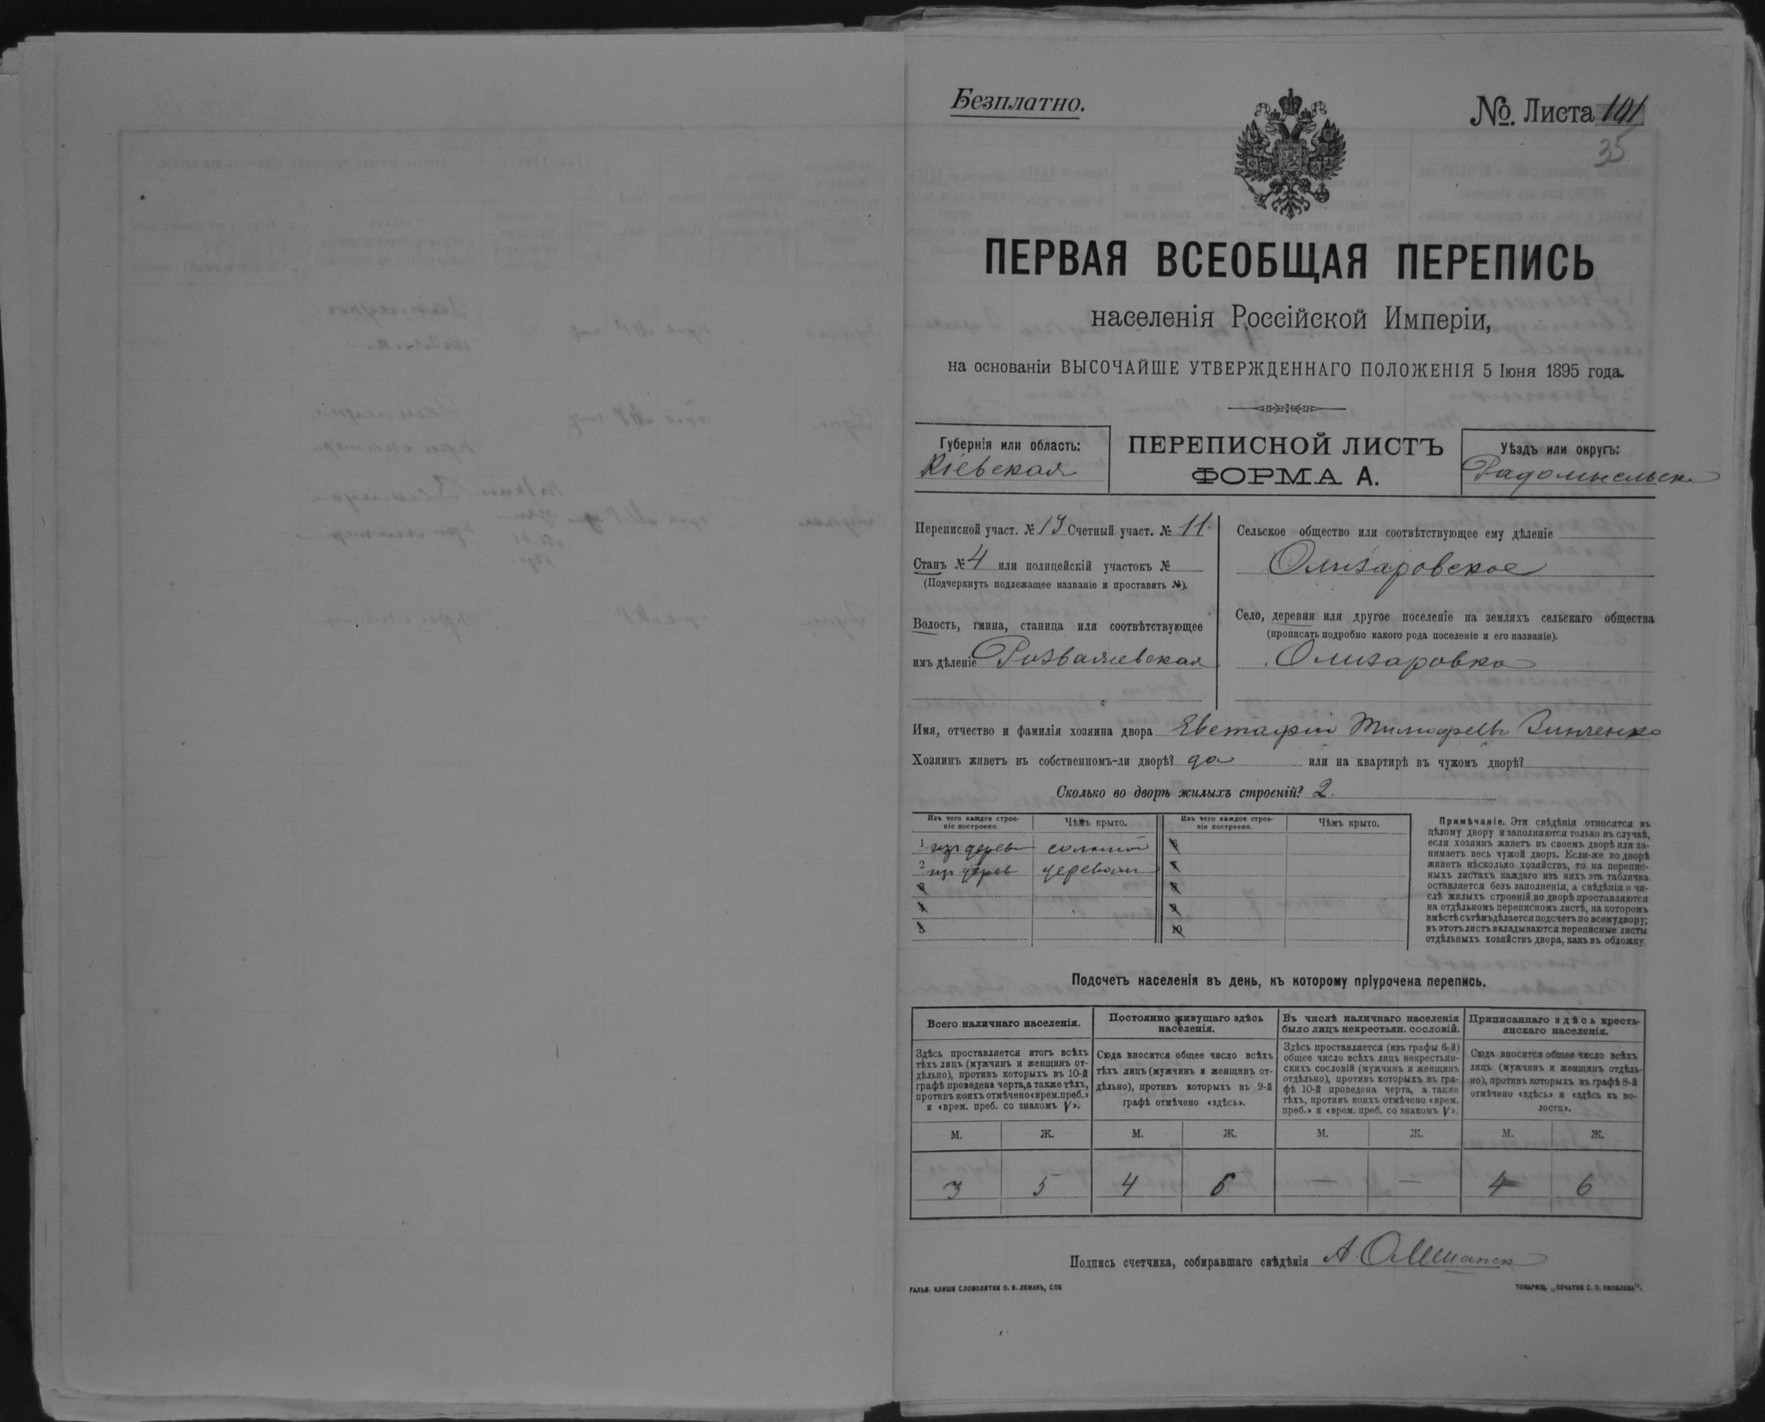 Безплатно.
№. Листа 191
35
ПЕРВАЯ ВСЕОБЩАЯ ПЕРЕПИСЬ
населенія Россійской Имперіи,
на основаніи ВЫСОЧАЙШЕ УТВЕРЖДЕННАГО ПОЛОЖЕНІЯ 5 Іюня 1895 года.
Губернія или область:
Кіевская
ПЕРЕПИСНОЙ ЛИСТЪ
ФОРМА А.
Уѣздъ или округъ:
Радомысльск
Переписной участ. № 13 Счетный участ. № 11.
Станъ № 4 или полицейскій участокъ №
(Подчеркнуть подлежащее названіе и проставить №).
Волость, гмина, станица или соотвѣтствующее
имъ дѣленіе Розважевская
Сельское общество или соотвѣтствующее ему дѣленіе
Олизаровское
Село, деревня или другое поселеніе на земляхъ сельскаго общества
(прописать подробно какого рода поселеніе и его названіе).
Олизаровка
Имя, отчество и фамилія хозяина двора Евстафій Тимофеевъ Зинченко
Хозяинъ живетъ въ собственномъ-ли дворѣ? да или на квартирѣ въ чужомъ дворѣ?
Сколько во дворѣ жилыхъ строеній? 2.
Изъ чего каждое строе-
ніе построено.
Чѣмъ крыто.
Изъ чего каждое строе-
ніе построено.
Чѣмъ крыто.
1 изъ дерев соломой 6
2 изъ дерев деревом 7
3 8
4 9
5 10
Примѣчаніе. Эти свѣдѣнія относятся къ
цѣлому двору и заполняются только въ случаѣ,
если хозяинъ живетъ въ своемъ дворѣ или за-
нимаетъ весь чужой дворъ. Если-же во дворѣ
живетъ нѣсколько хозяйствъ, то на перепис-
ныхъ листахъ каждаго изъ нихъ эта табличка
оставляется безъ заполненія, а свѣдѣнія о чи-
слѣ жилыхъ строеній во дворѣ проставляются
на отдѣльномъ переписномъ листѣ, на которомъ
вмѣстѣ съ тѣмъ дѣлается подсчетъ по всему двору;
въ этотъ листъ вкладываются переписные листы
отдѣльныхъ хозяйствъ двора, какъ въ обложку.
Подсчетъ населенія въ день, къ которому пріурочена перепись.
Всего наличнаго населенія.
Здѣсь проставляется итогъ всѣхъ
тѣхъ лицъ (мужчинъ и женщинъ от-
дѣльно), противъ которыхъ въ 10-й
графѣ проведена черта, а также тѣхъ,
противъ коихъ отмѣчено «врем. преб.»
и «врем. преб. со знакомъ V».
Постоянно живущаго здѣсь
населенія.
Сюда вносится общее число всѣхъ
тѣхъ лицъ (мужчинъ и женщинъ от-
дѣльно), противъ которыхъ въ 9-й
графѣ отмѣчено «здѣсь».
Въ числѣ наличнаго населенія
было лицъ некрестьян. сословій.
Здѣсь проставляется (изъ графы 6-й)
общее число всѣхъ лицъ некрестьян-
скихъ сословій (мужчинъ и женщинъ
отдѣльно), противъ которыхъ въ гра-
фѣ 10-й проведена черта, а также
тѣхъ, противъ коихъ отмѣчено «врем.
преб.» и «врем. преб. со знакомъ V».
Приписаннаго здѣсь кресть-
янскаго населенія.
Сюда вносится общее число всѣхъ
лицъ (мужчинъ и женщинъ отдѣль-
но), противъ которыхъ въ графѣ 8-й
отмѣчено «здѣсь» и «здѣсь къ во-
лости».
М. Ж. М. Ж. М. Ж. М. Ж.
3 5 4 6 — — 4 6
Подпись счетчика, собиравшаго свѣдѣнія А.
ГАЛЬВ. КЛИШЕ СЛОВОЛИТНИ О. И. ЛЕМАНЪ, СПБ.
ТОВАРИЩ. „ПЕЧАТНЯ С. П. ЯКОВЛЕВА".